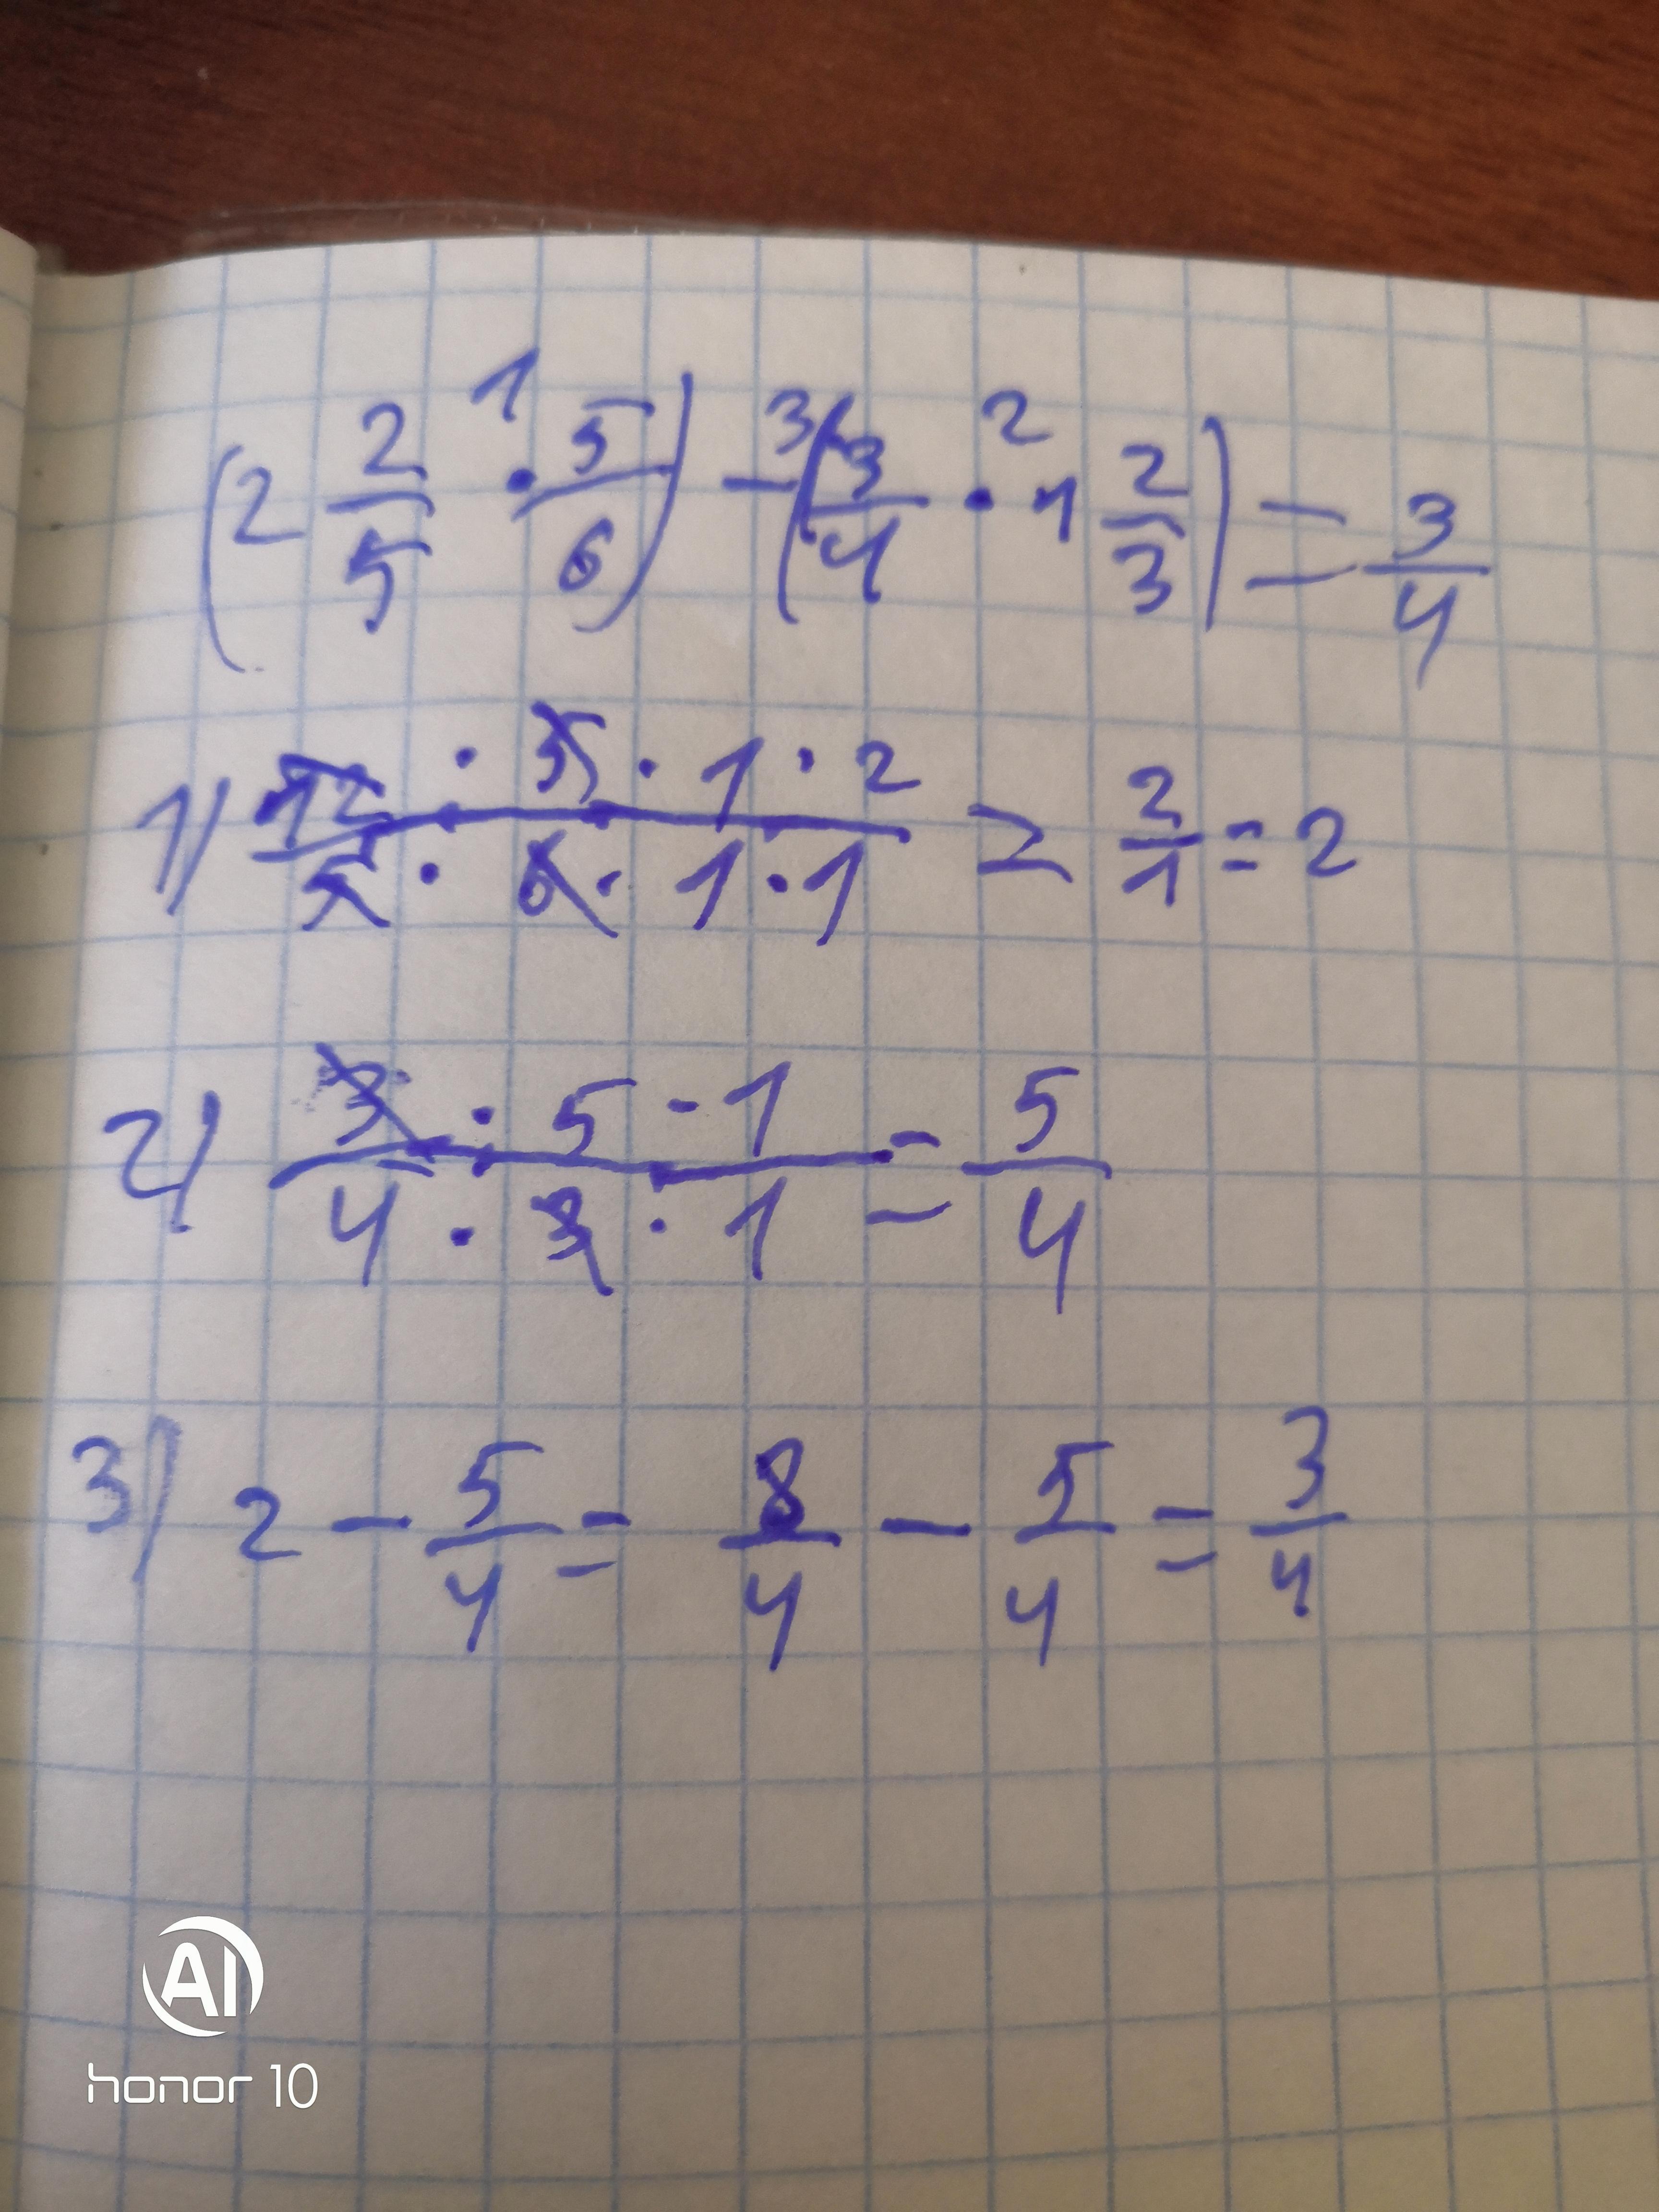 (2 2/5 · 5/6) - (3/4 · 1 2/3) = 3/4
1 3 2
1) 12 · 5 · 1 · 2 / 5 · 6 · 1 · 1 = 2/1 = 2
2) 3 · 5 · 1 / 4 · 3 · 1 = 5/4
3) 2 - 5/4 = 8/4 - 5/4 = 3/4
AI
honor 10